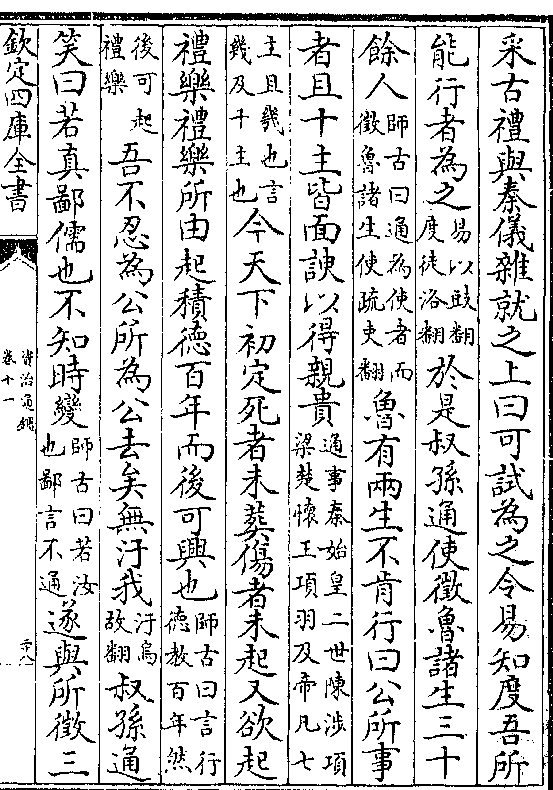 采古禮與秦儀雜就之上曰可試為之令易知度吾所
能行者為之易以豉翻度徒洛翻於是叔孫通使徵魯諸生三十
餘人師古曰通為使者而徵魯諸生使疏吏翻魯有兩生不肯行曰公所事
者且十主皆面諛以得親貴通事秦始皇二世陳涉項梁楚懷王項羽及帝凡七
主且幾也言幾及十主也今天下初定死者未葬傷者未起又欲起
禮樂禮樂所由起積德百年而後可興也師古曰言行德教百年然
後可起禮樂吾不忍為公所為公去矣無汙我汙烏故翻叔孫通
笑曰若真鄙儒也不知時變師古曰若汝也鄙言不通遂與所徵三
欽定四庫全書
資治通鑑
卷十一
二十八